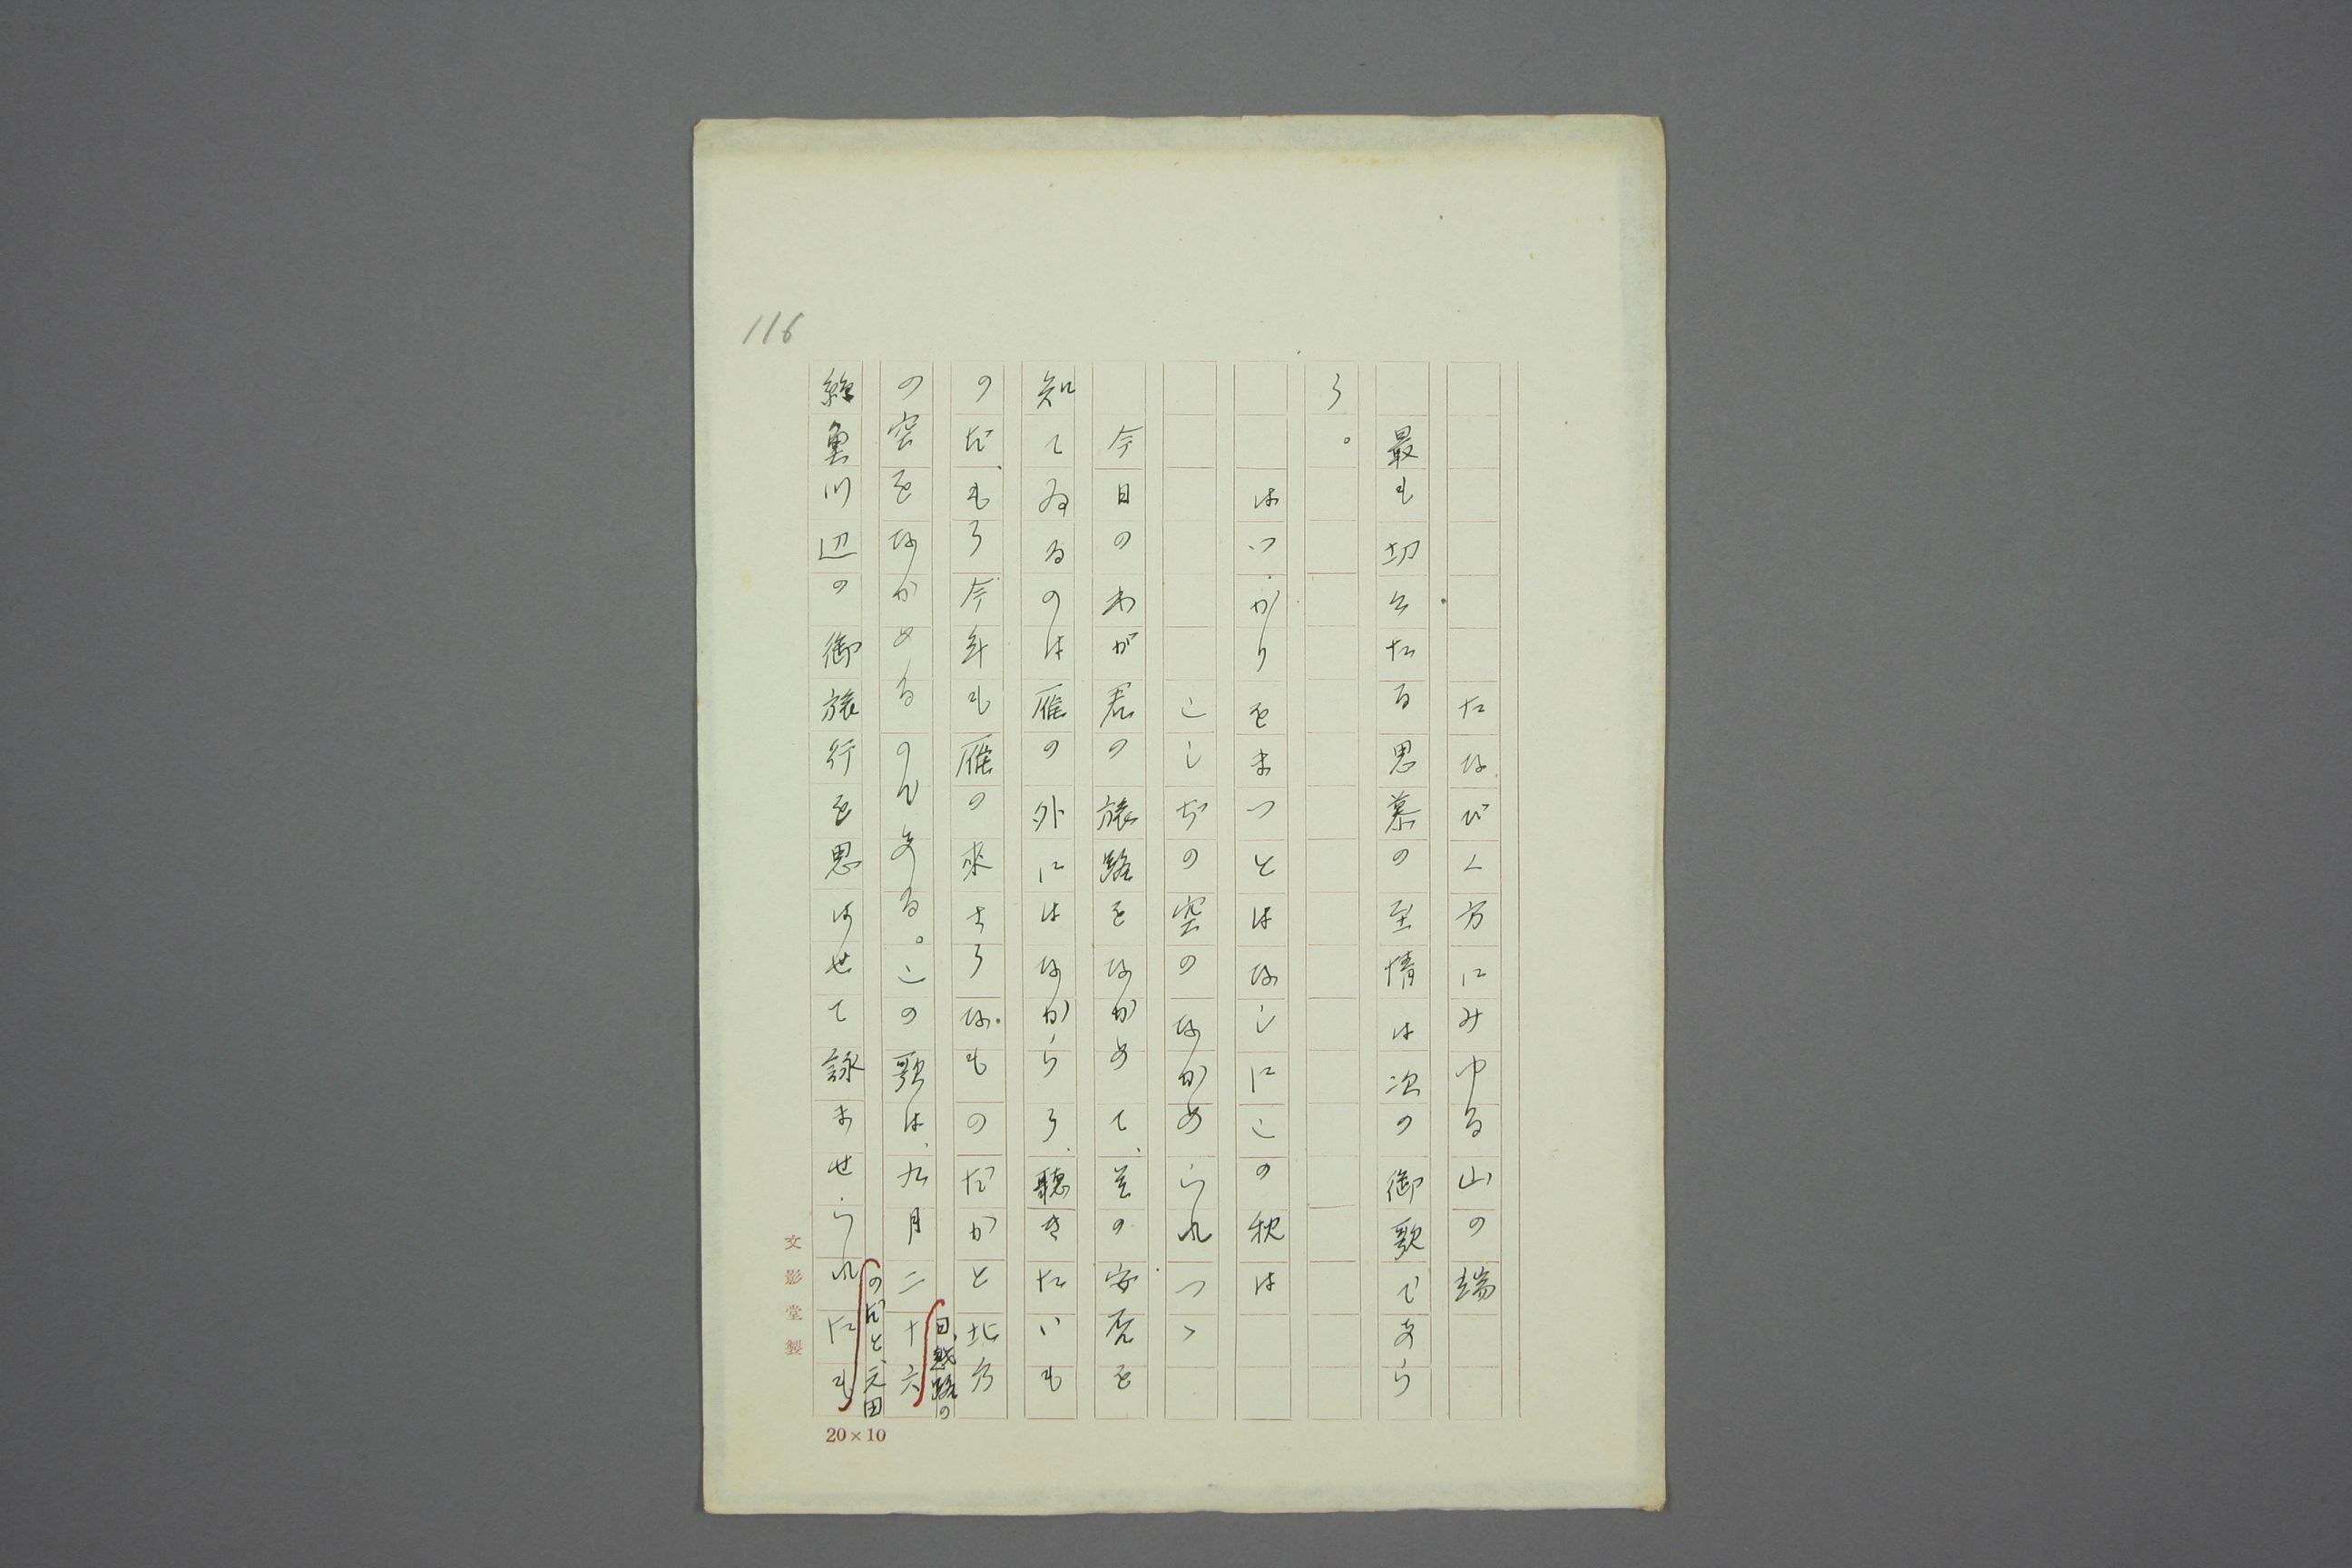 116
たなびく方にみゆる山の端
最も切々たる思慕の至情は次の御歌であら
う。
はつかりをまつとはなしにこの秋は
こしぢの空のなかめられつゝ
今日のわが君の旅路をなかめて、其の安否を
知てゐるのは雁の外にはなからう、聴きたいも
のだ、もう今年も雁の来さうなものだかと北方
の空をなかめるのである。この歌は、九月二十六
日、越路の
糸魚川辺の御旅行を思はせて詠ませられた
のだと、元田
も
文影堂製
20×10